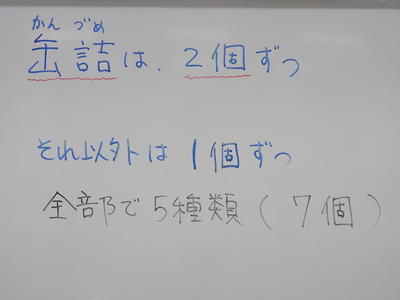 かん づめ
缶詰は、2個ずつ
それ以外は1個ずつ
全部で5種類(7個)